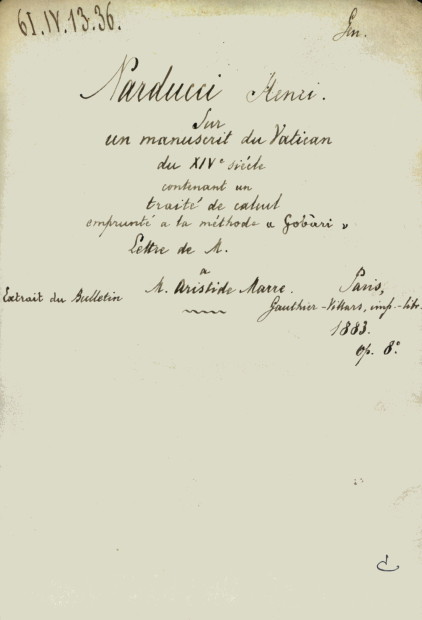 61.IV.13.36.
Narducci Henri.
Sur
un manuscrit du Vatican
du XIVe siécle
contenant un
traité de calcul
emprunté a la méthode « Gobâri »
Lettre de M.
a
M. Aristide Marre.
Extrait du Bulletin
Paris,
Gauthier-Villars, imp.-libr.
1883.
op. 8º